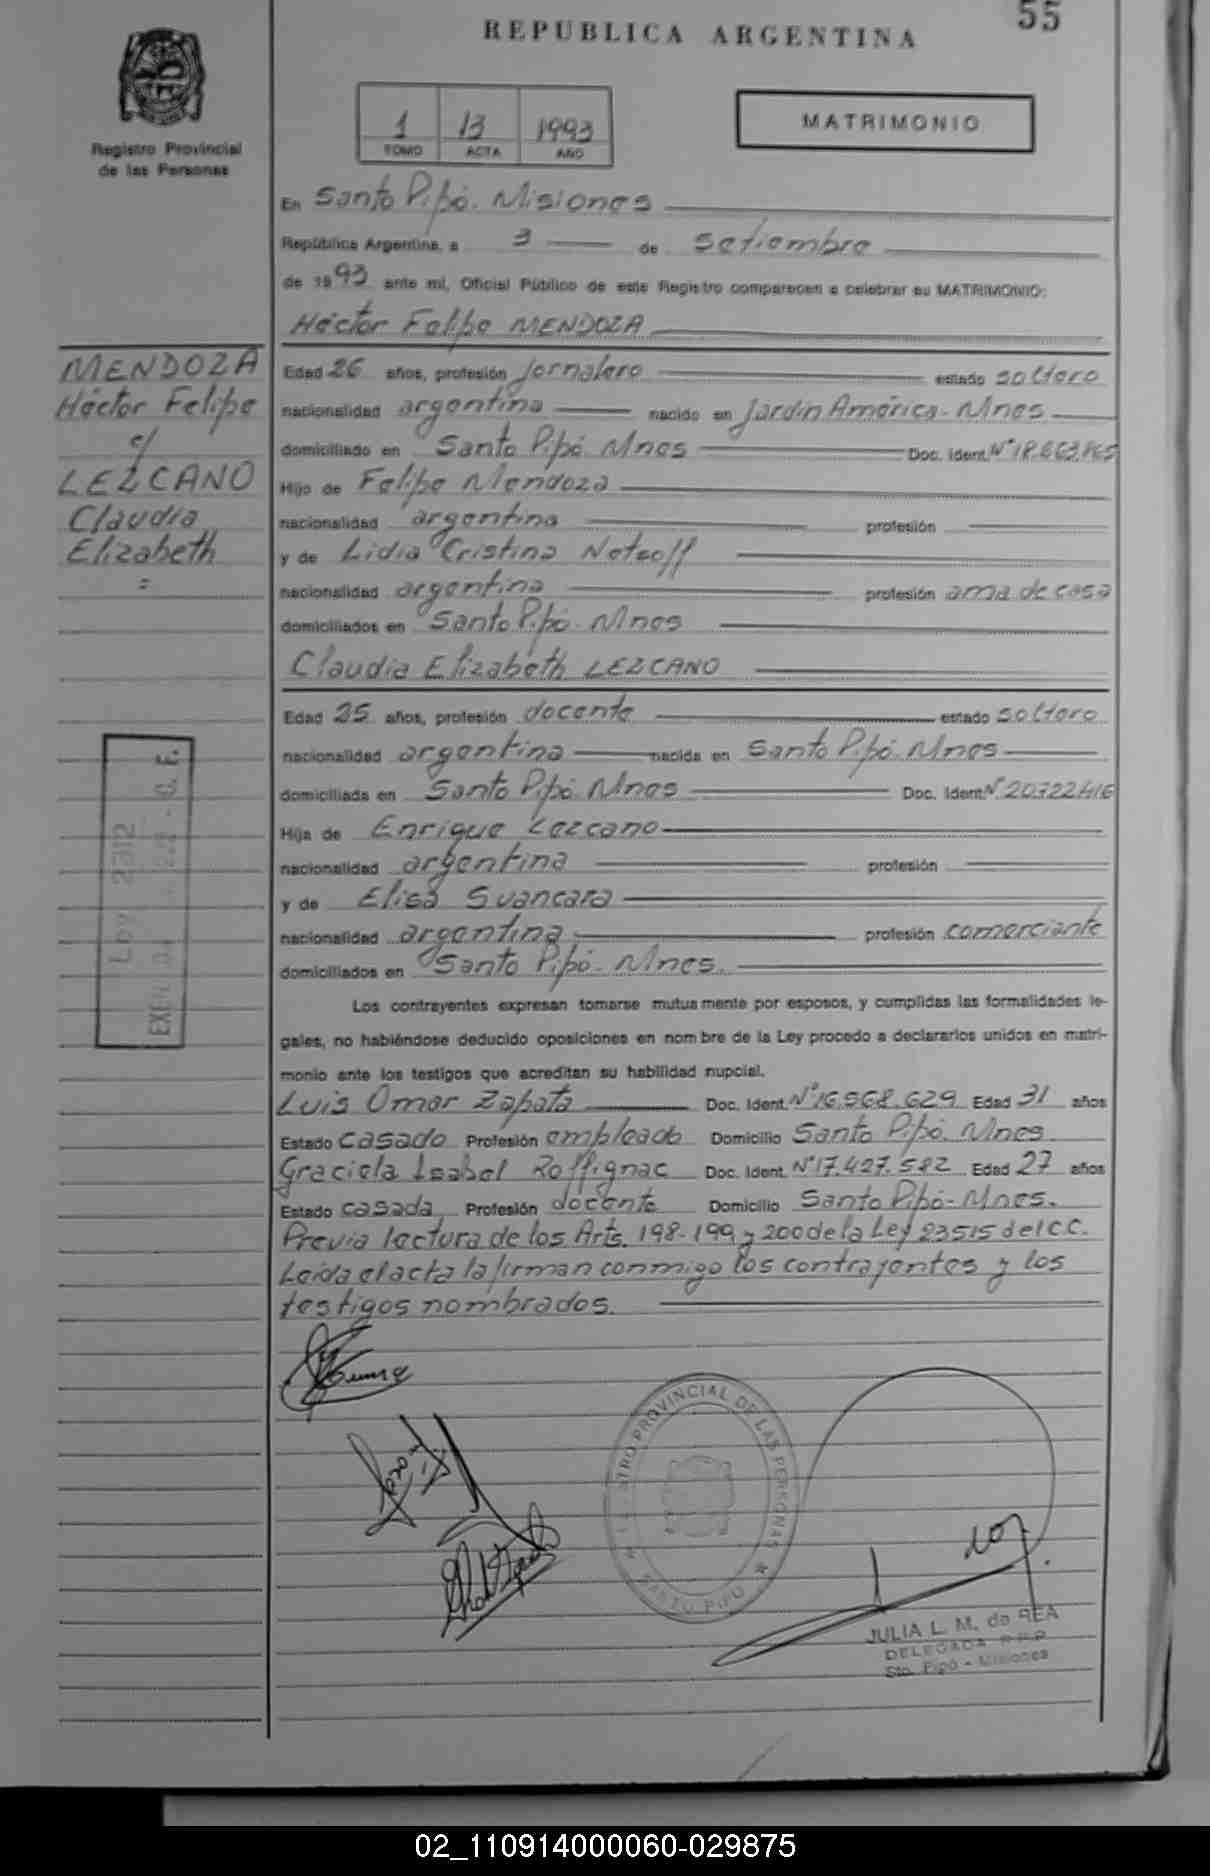 55
REPUBLICA ARGENTINA
Registro Provincial
de las Personas
1 13 1993
TOMO ACTA AÑO
MATRIMONIO
En Santo Pipó. Misiones
República Argentina, a 3 de Setiembre
de 1993 ante mí, Oficial Público de este Registro comparecen a celebrar su MATRIMONIO:
Héctor Felipe MENDOZA
MENDOZA
Héctor Felipe
c/
LEZCANO
Claudia
Elizabeth
=
Edad 26 años, profesión jornalero estado soltero
nacionalidad argentina nacido en Jardín América - Mnes
domiciliado en Santo Pipó Mnes Doc. Ident. N°
Hijo de Felipe Mendoza
nacionalidad argentina profesión
y de Lidia Cristina
nacionalidad argentina profesión ama de casa
domiciliados en Santo Pipó - Mnes
Claudia Elizabeth LEZCANO
Edad 25 años, profesión docente estado soltero
nacionalidad argentina nacida en Santo Pipó. Mnes
domiciliada en Santo Pipó. Mnes Doc. Ident. N° 20.722.416
Hija de Enrique Lezcano
nacionalidad argentina profesión
y de Elisa Svancara
nacionalidad argentina profesión comerciante
domiciliados en Santo Pipó - Mnes.
Los contrayentes expresan tomarse mutuamente por esposos, y cumplidas las formalidades le-
gales, no habiéndose deducido oposiciones en nombre de la Ley procedo a declararlos unidos en matri-
monio ante los testigos que acreditan su habilidad nupcial.
Luis Omar Zapata Doc. Ident. N° 16.968.629 Edad 31 años
Estado casado Profesión empleado Domicilio Santo Pipó. Mnes
Graciela Isabel Roffignac Doc. Ident. N° 17.427.582 Edad 27 años
Estado casada Profesión docente Domicilio Santo Pipó - Mnes.
Previa lectura de los Arts. 198-199 y 200 de la Ley 23515 del C.C.
Leída el acta la firman conmigo los contrayentes y los
testigos nombrados.
PROVINCIAL DE LAS PERSONAS
SANTO PIPÓ
JULIA L. M. de REA
DELEGADA R.P.P.
Sto. Pipó - Misiones
02_110914000060-029875